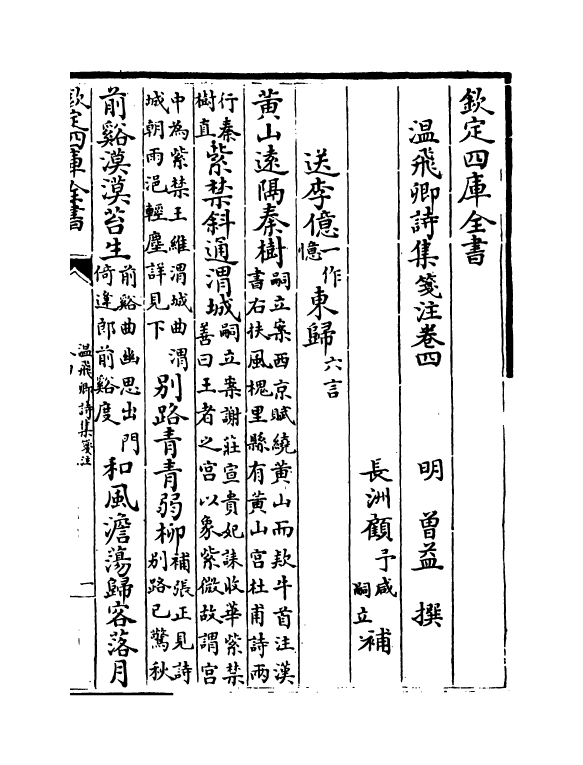 欽定四庫全書
温飛卿詩集箋注卷四
明 曾益 撰
長洲顧予咸嗣立補
送李億一作憶東歸六言
黃山遠隔秦樹嗣立案西京賦繞黃山而欵牛首注漢書右扶風槐里縣有黃山宫杜甫詩兩
行秦樹直紫禁斜通渭城嗣立案謝莊宣貴妃誄收華紫禁善曰王者之宫以象紫微故謂宫
中為紫禁王維渭城曲渭城朝雨浥輕塵詳見下别路青青弱柳補張正見詩别路已驚秋
前谿漠漠苔生前谿曲幽思出門倚逢郎前谿度和風澹蕩歸客落月
欽定四庫全書
温飛卿詩集箋注
一